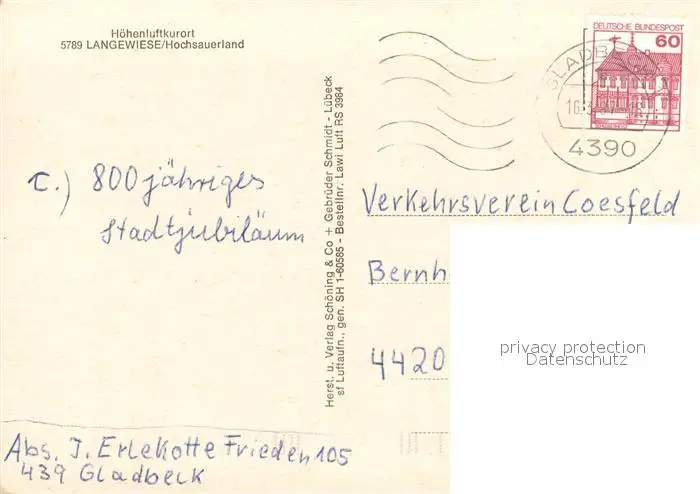 Höhenluftkurort
5789 LANGEWIESE/Hochsauerland
DEUTSCHE BUNDESPOST
60
GLADBECK
4390
c.) 800 jähriges
Stadtjubiläum
Herst. u. Verlag Schöning & Co + Gebrüder Schmidt - Lübeck
sf Luftaufn., gen. SH 1-60585 - Bestellnr. Lawi Luft RS 3984
Verkehrsverein Coesfeld
Bernh
4420
privacy protection
Datenschutz
Abs. J. Erlekotte Frieden 105
439 Gladbeck